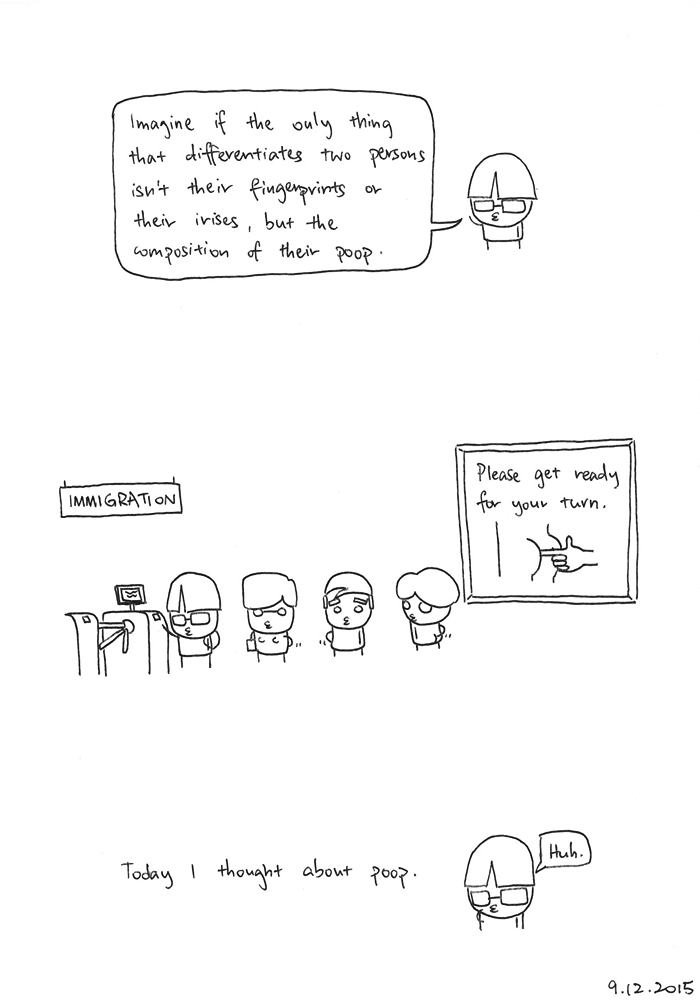 Imagine if the only thing
that differentiates two persons
isn't their fingerprints or
their irises, but the
composition of their poop.
IMMIGRATION
Please get ready
for your turn.
Today I thought about poop.
Huh.
9.12.2015